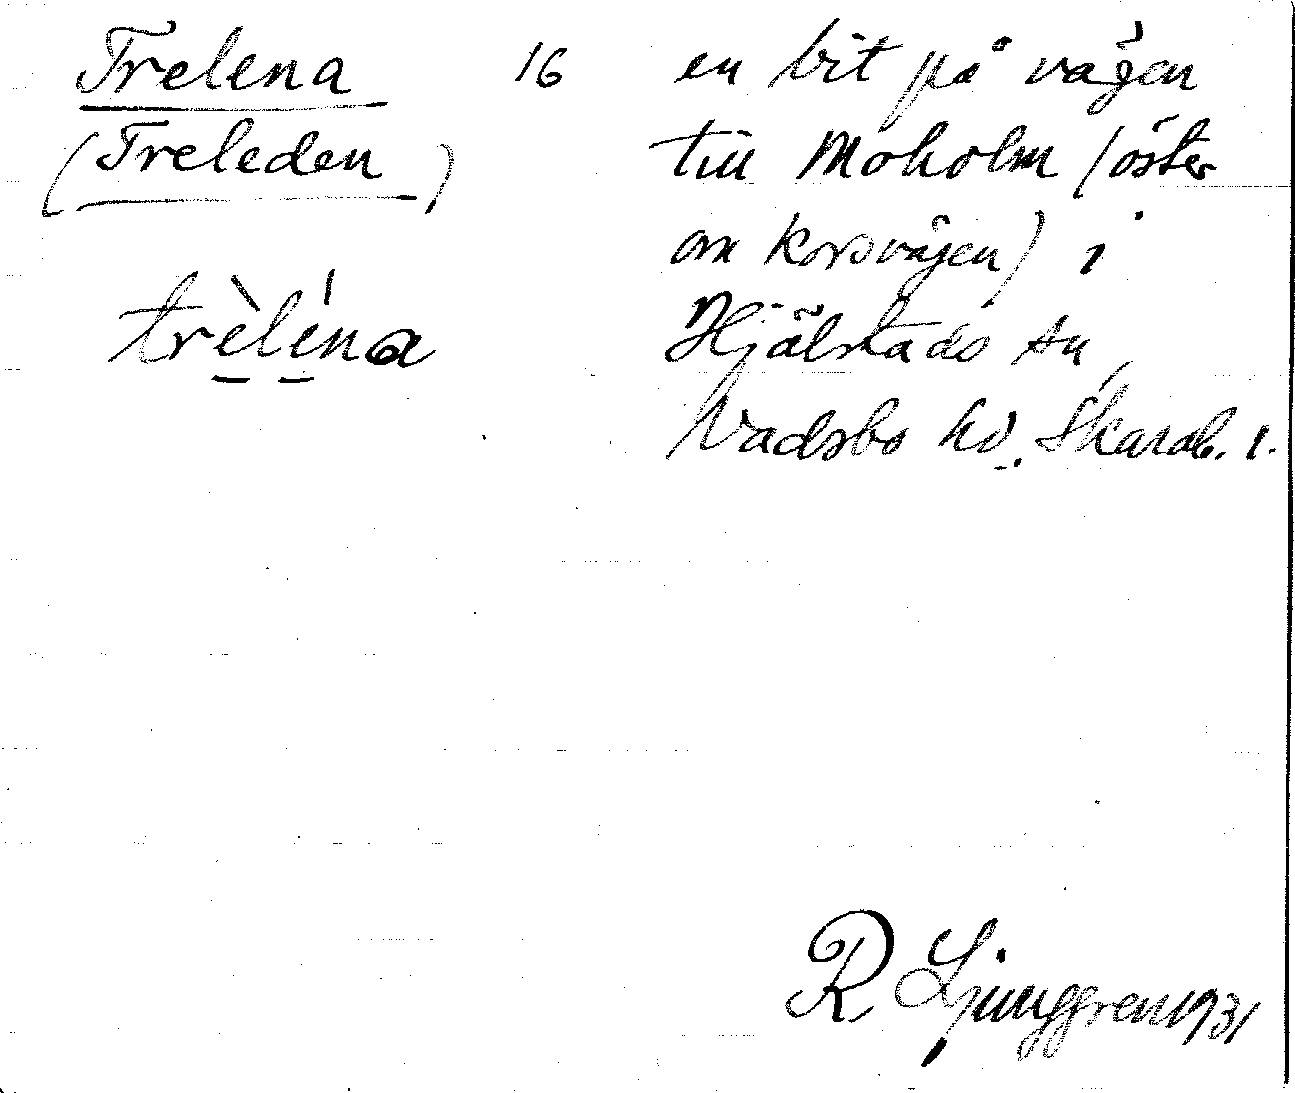 Trelena 16 en bit på vägen
(Treleden) till Moholm (öster
om korsvägen) i
trèléna Hjälstads sn
Vadsbo hd. Skarab. l.
R Ljunggren 1931